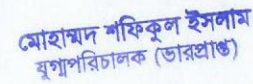 মোহাম্মদ শফিকুল ইসলাম
যুগ্মপরিচালক (ভারপ্রাপ্ত)